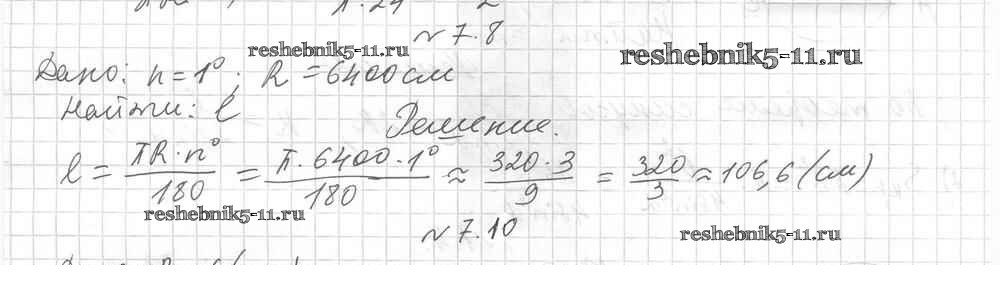 № 7.8
reshebnik5-11.ru
reshebnik5-11.ru
Дано: n = 1°; R = 6400 см
Найти: l
Решение.
l = πR·n° / 180 = π·6400·1° / 180 ≈ 320·3 / 9 = 320 / 3 ≈ 106,6 (см)
reshebnik5-11.ru
№ 7.10
reshebnik5-11.ru